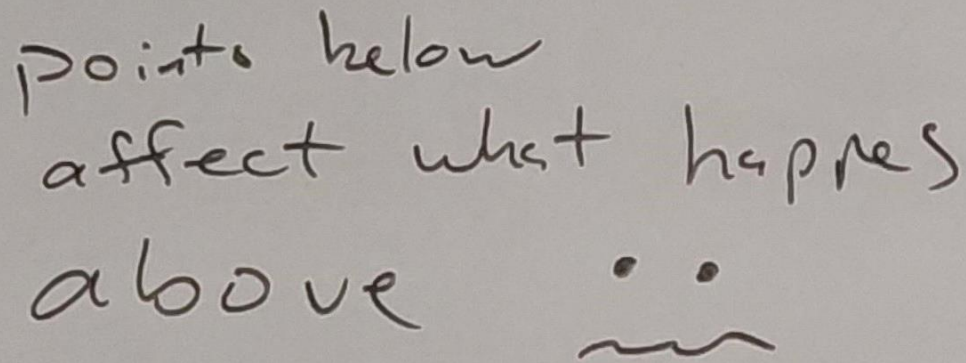 points below
affect what happnes
above